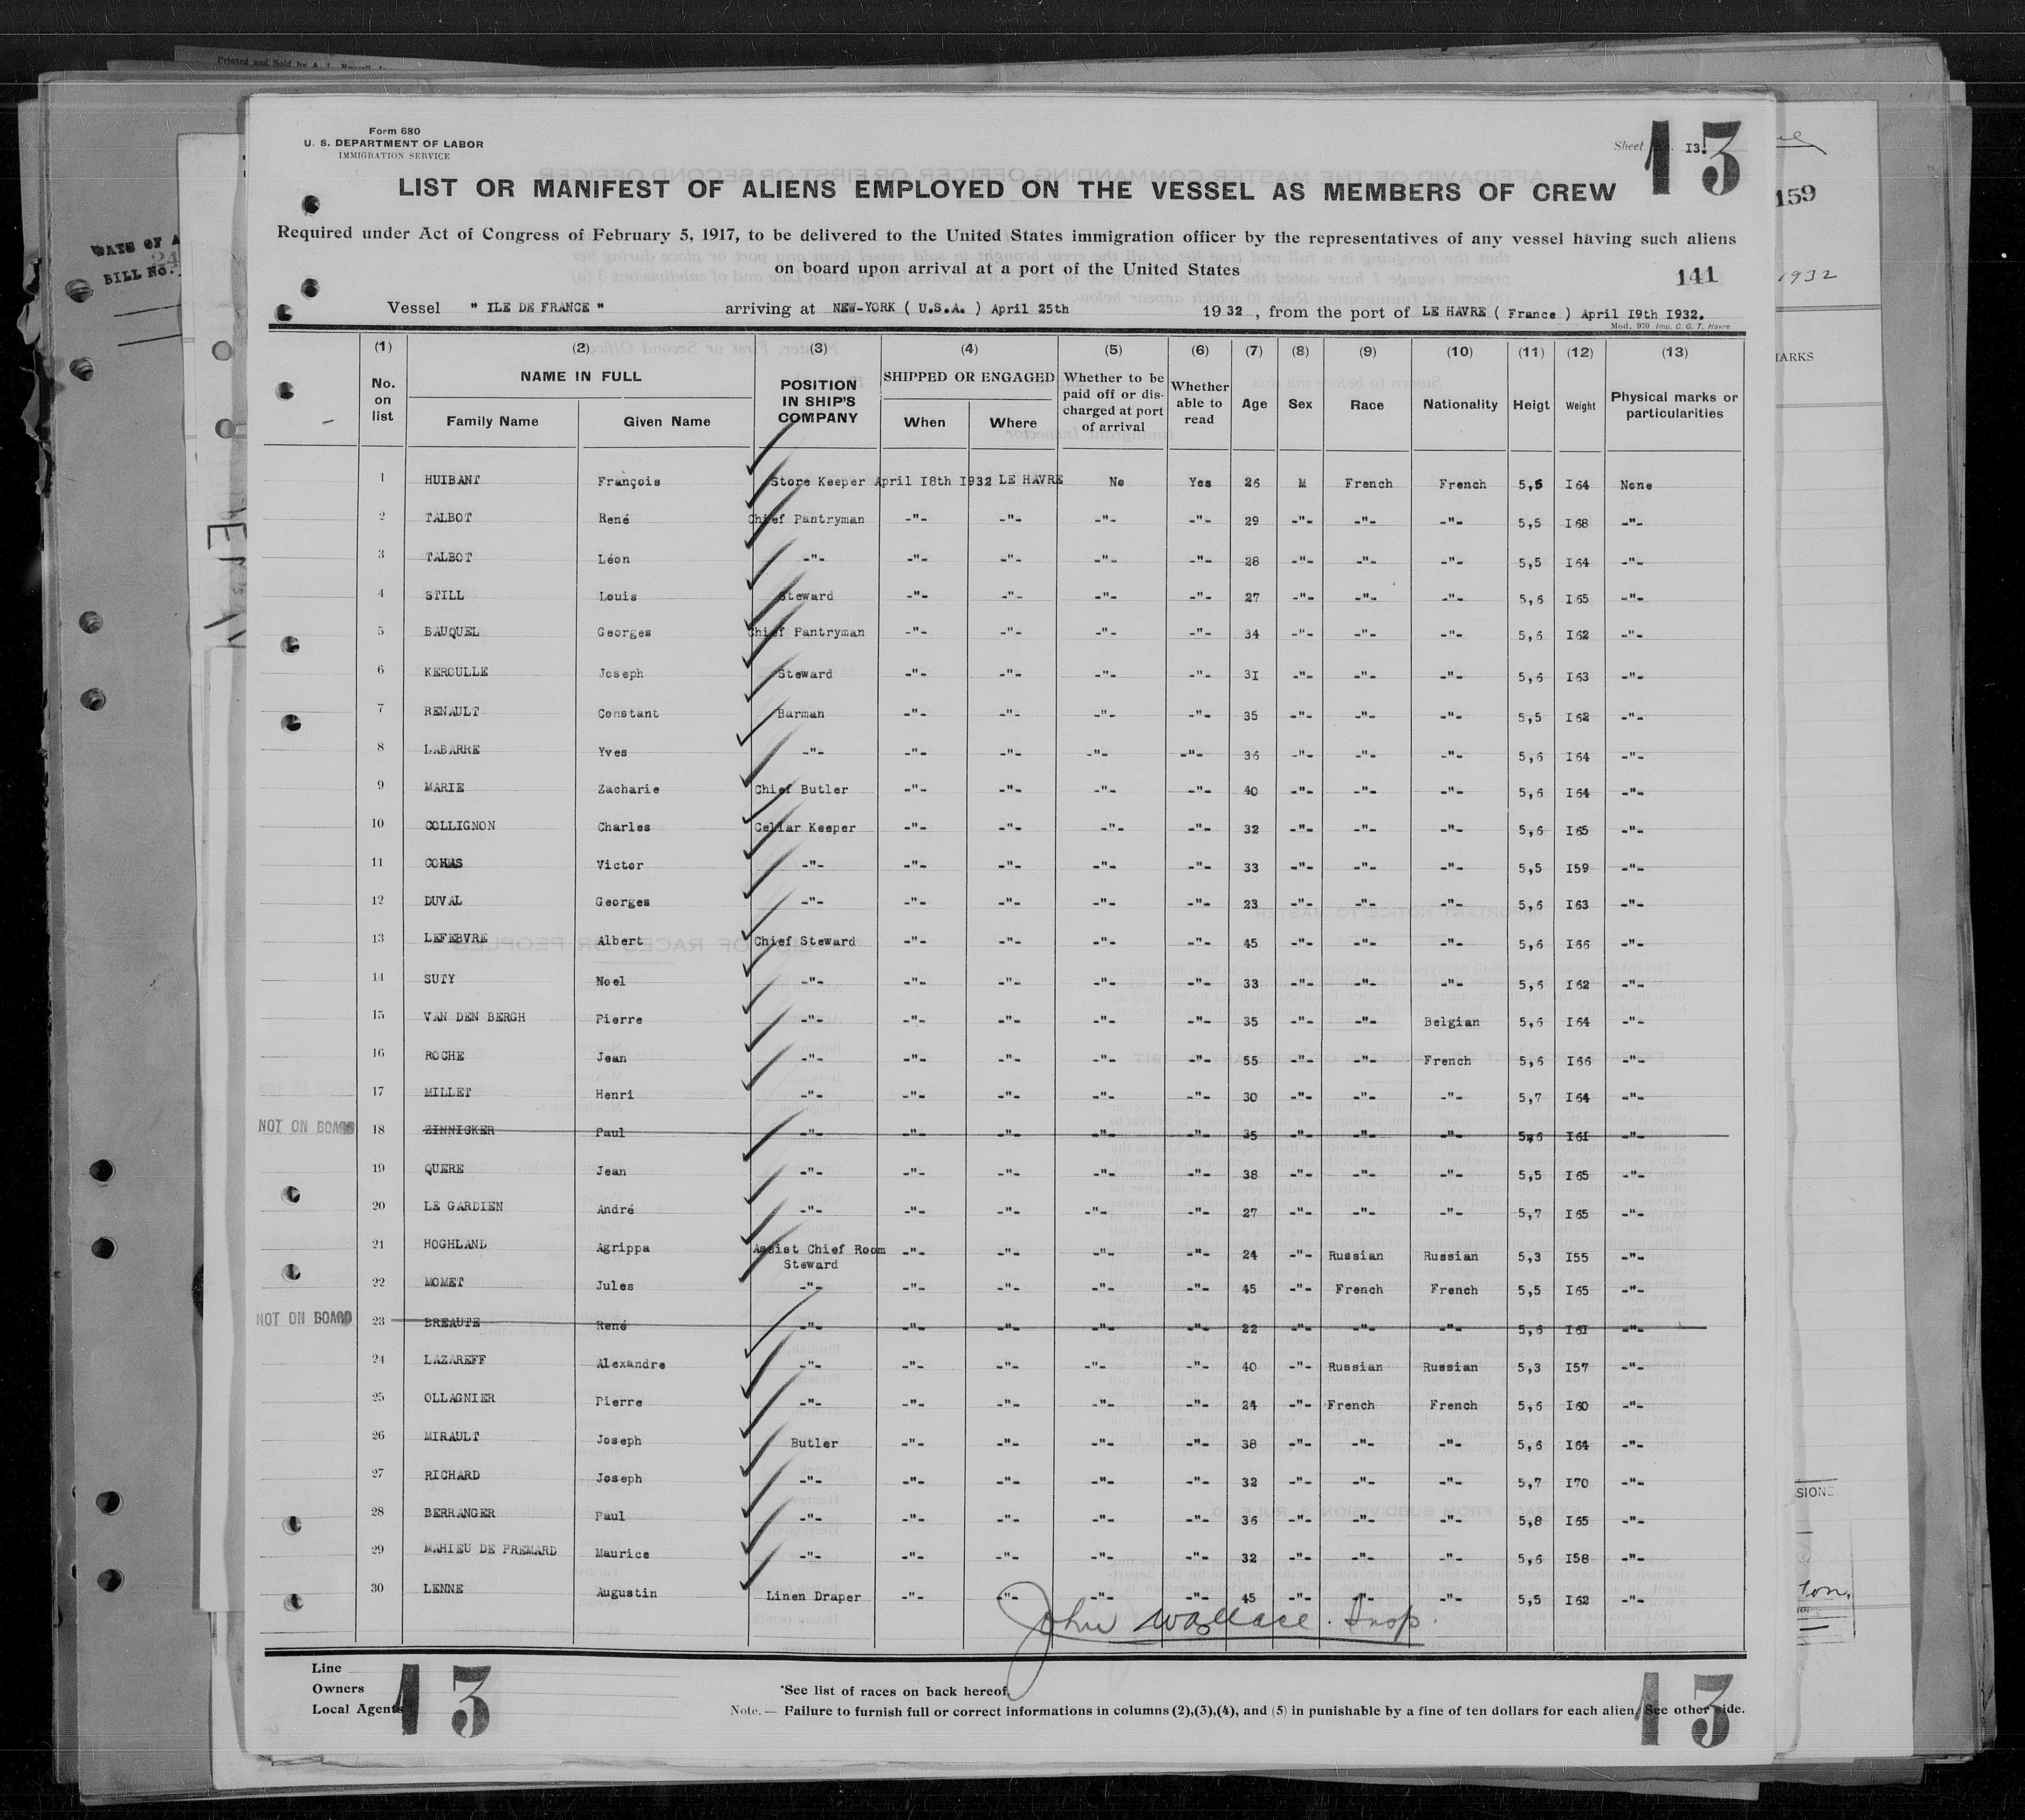 Printed and Sold by A. L.
Form 680
U. S. DEPARTMENT OF LABOR
IMMIGRATION SERVICE
Sheet No. I3.
13
LIST OR MANIFEST OF ALIENS EMPLOYED ON THE VESSEL AS MEMBERS OF CREW
159
Required under Act of Congress of February 5, 1917, to be delivered to the United States immigration officer by the representatives of any vessel having such aliens
on board upon arrival at a port of the United States
141
1932
BILL No.
Vessel " ILE DE FRANCE " arriving at NEW-YORK ( U.S.A. ) April 25th 1932 , from the port of LE HAVRE ( France ) April I9th I932.
Mod. 970 Imp. C. G. T. Havre
(1) (2) (3) (4) (5) (6) (7) (8) (9) (10) (11) (12) (13)
No. on list NAME IN FULL Family Name Given Name POSITION IN SHIP'S COMPANY SHIPPED OR ENGAGED When Where Whether to be paid off or discharged at port of arrival Whether able to read Age Sex Race Nationality Heigt Weight Physical marks or particularities
1 HUIBANT François Store Keeper April I8th I932 LE HAVRE No Yes 26 M French French 5,5 I64 None
2 TALBOT René Chief Pantryman -"- -"- -"- -"- 29 -"- -"- -"- 5,5 I68 -"-
3 TALBOT Léon -"- -"- -"- -"- -"- 28 -"- -"- -"- 5,5 I64 -"-
4 STILL Louis Steward -"- -"- -"- -"- 27 -"- -"- -"- 5,6 I65 -"-
5 BAUQUEL Georges Chief Pantryman -"- -"- -"- -"- 34 -"- -"- -"- 5,6 I62 -"-
6 KEROULLE Joseph Steward -"- -"- -"- -"- 3I -"- -"- -"- 5,6 I63 -"-
7 RENAULT Constant Barman -"- -"- -"- -"- 35 -"- -"- -"- 5,5 I62 -"-
8 LABARRE Yves -"- -"- -"- -"- -"- 36 -"- -"- -"- 5,6 I64 -"-
9 MARIE Zacharie Chief Butler -"- -"- -"- -"- 40 -"- -"- -"- 5,6 I64 -"-
10 COLLIGNON Charles Cellar Keeper -"- -"- -"- -"- 32 -"- -"- -"- 5,6 I65 -"-
11 Victor -"- -"- -"- -"- -"- 33 -"- -"- -"- 5,5 I59 -"-
12 DUVAL Georges -"- -"- -"- -"- -"- 23 -"- -"- -"- 5,6 I63 -"-
13 LEFEBVRE Albert Chief Steward -"- -"- -"- -"- 45 -"- -"- -"- 5,6 I66 -"-
14 SUTY Noel -"- -"- -"- -"- -"- 33 -"- -"- -"- 5,6 I62 -"-
15 VAN DEN BERGH Pierre -"- -"- -"- -"- -"- 35 -"- -"- Belgian 5,6 I64 -"-
16 ROCHE Jean -"- -"- -"- -"- -"- 55 -"- -"- French 5,6 I66 -"-
17 MILLET Henri -"- -"- -"- -"- -"- 30 -"- -"- -"- 5,7 I64 -"-
NOT ON BOARD 18 ZINNICKER Paul -"- -"- -"- -"- -"- 35 -"- -"- -"- 5,6 I6I -"-
19 QUERE Jean -"- -"- -"- -"- -"- 38 -"- -"- -"- 5,5 I65 -"-
20 LE GARDIEN André -"- -"- -"- -"- -"- 27 -"- -"- -"- 5,7 I65 -"-
21 HOGHLAND Agrippa Assist Chief Room Steward -"- -"- -"- -"- 24 -"- Russian Russian 5,3 I55 -"-
22 MOMET Jules -"- -"- -"- -"- -"- 45 -"- French French 5,5 I65 -"-
NOT ON BOARD 23 BREAUTE René -"- -"- -"- -"- -"- 22 -"- -"- -"- 5,6 I6I -"-
24 LAZAREFF Alexandre -"- -"- -"- -"- -"- 40 -"- Russian Russian 5,3 I57 -"-
25 OLLAGNIER Pierre -"- -"- -"- -"- -"- 24 -"- French French 5,6 I60 -"-
26 MIRAULT Joseph Butler -"- -"- -"- -"- 38 -"- -"- -"- 5,6 I64 -"-
27 RICHARD Joseph -"- -"- -"- -"- -"- 32 -"- -"- -"- 5,7 I70 -"-
28 BERRANGER Paul -"- -"- -"- -"- -"- 36 -"- -"- -"- 5,8 I65 -"-
29 MAHIEU DE PREMARD Maurice -"- -"- -"- -"- -"- 32 -"- -"- -"- 5,6 I58 -"-
30 LENNE Augustin Linen Draper -"- -"- -"- -"- 45 -"- -"- -"- 5,5 I62 -"-
John Wallace. Insp.
Line
Owners
Local Agents
13
*See list of races on back hereof.
Note. — Failure to furnish full or correct informations in columns (2),(3),(4), and (5) in punishable by a fine of ten dollars for each alien. See other side.
13